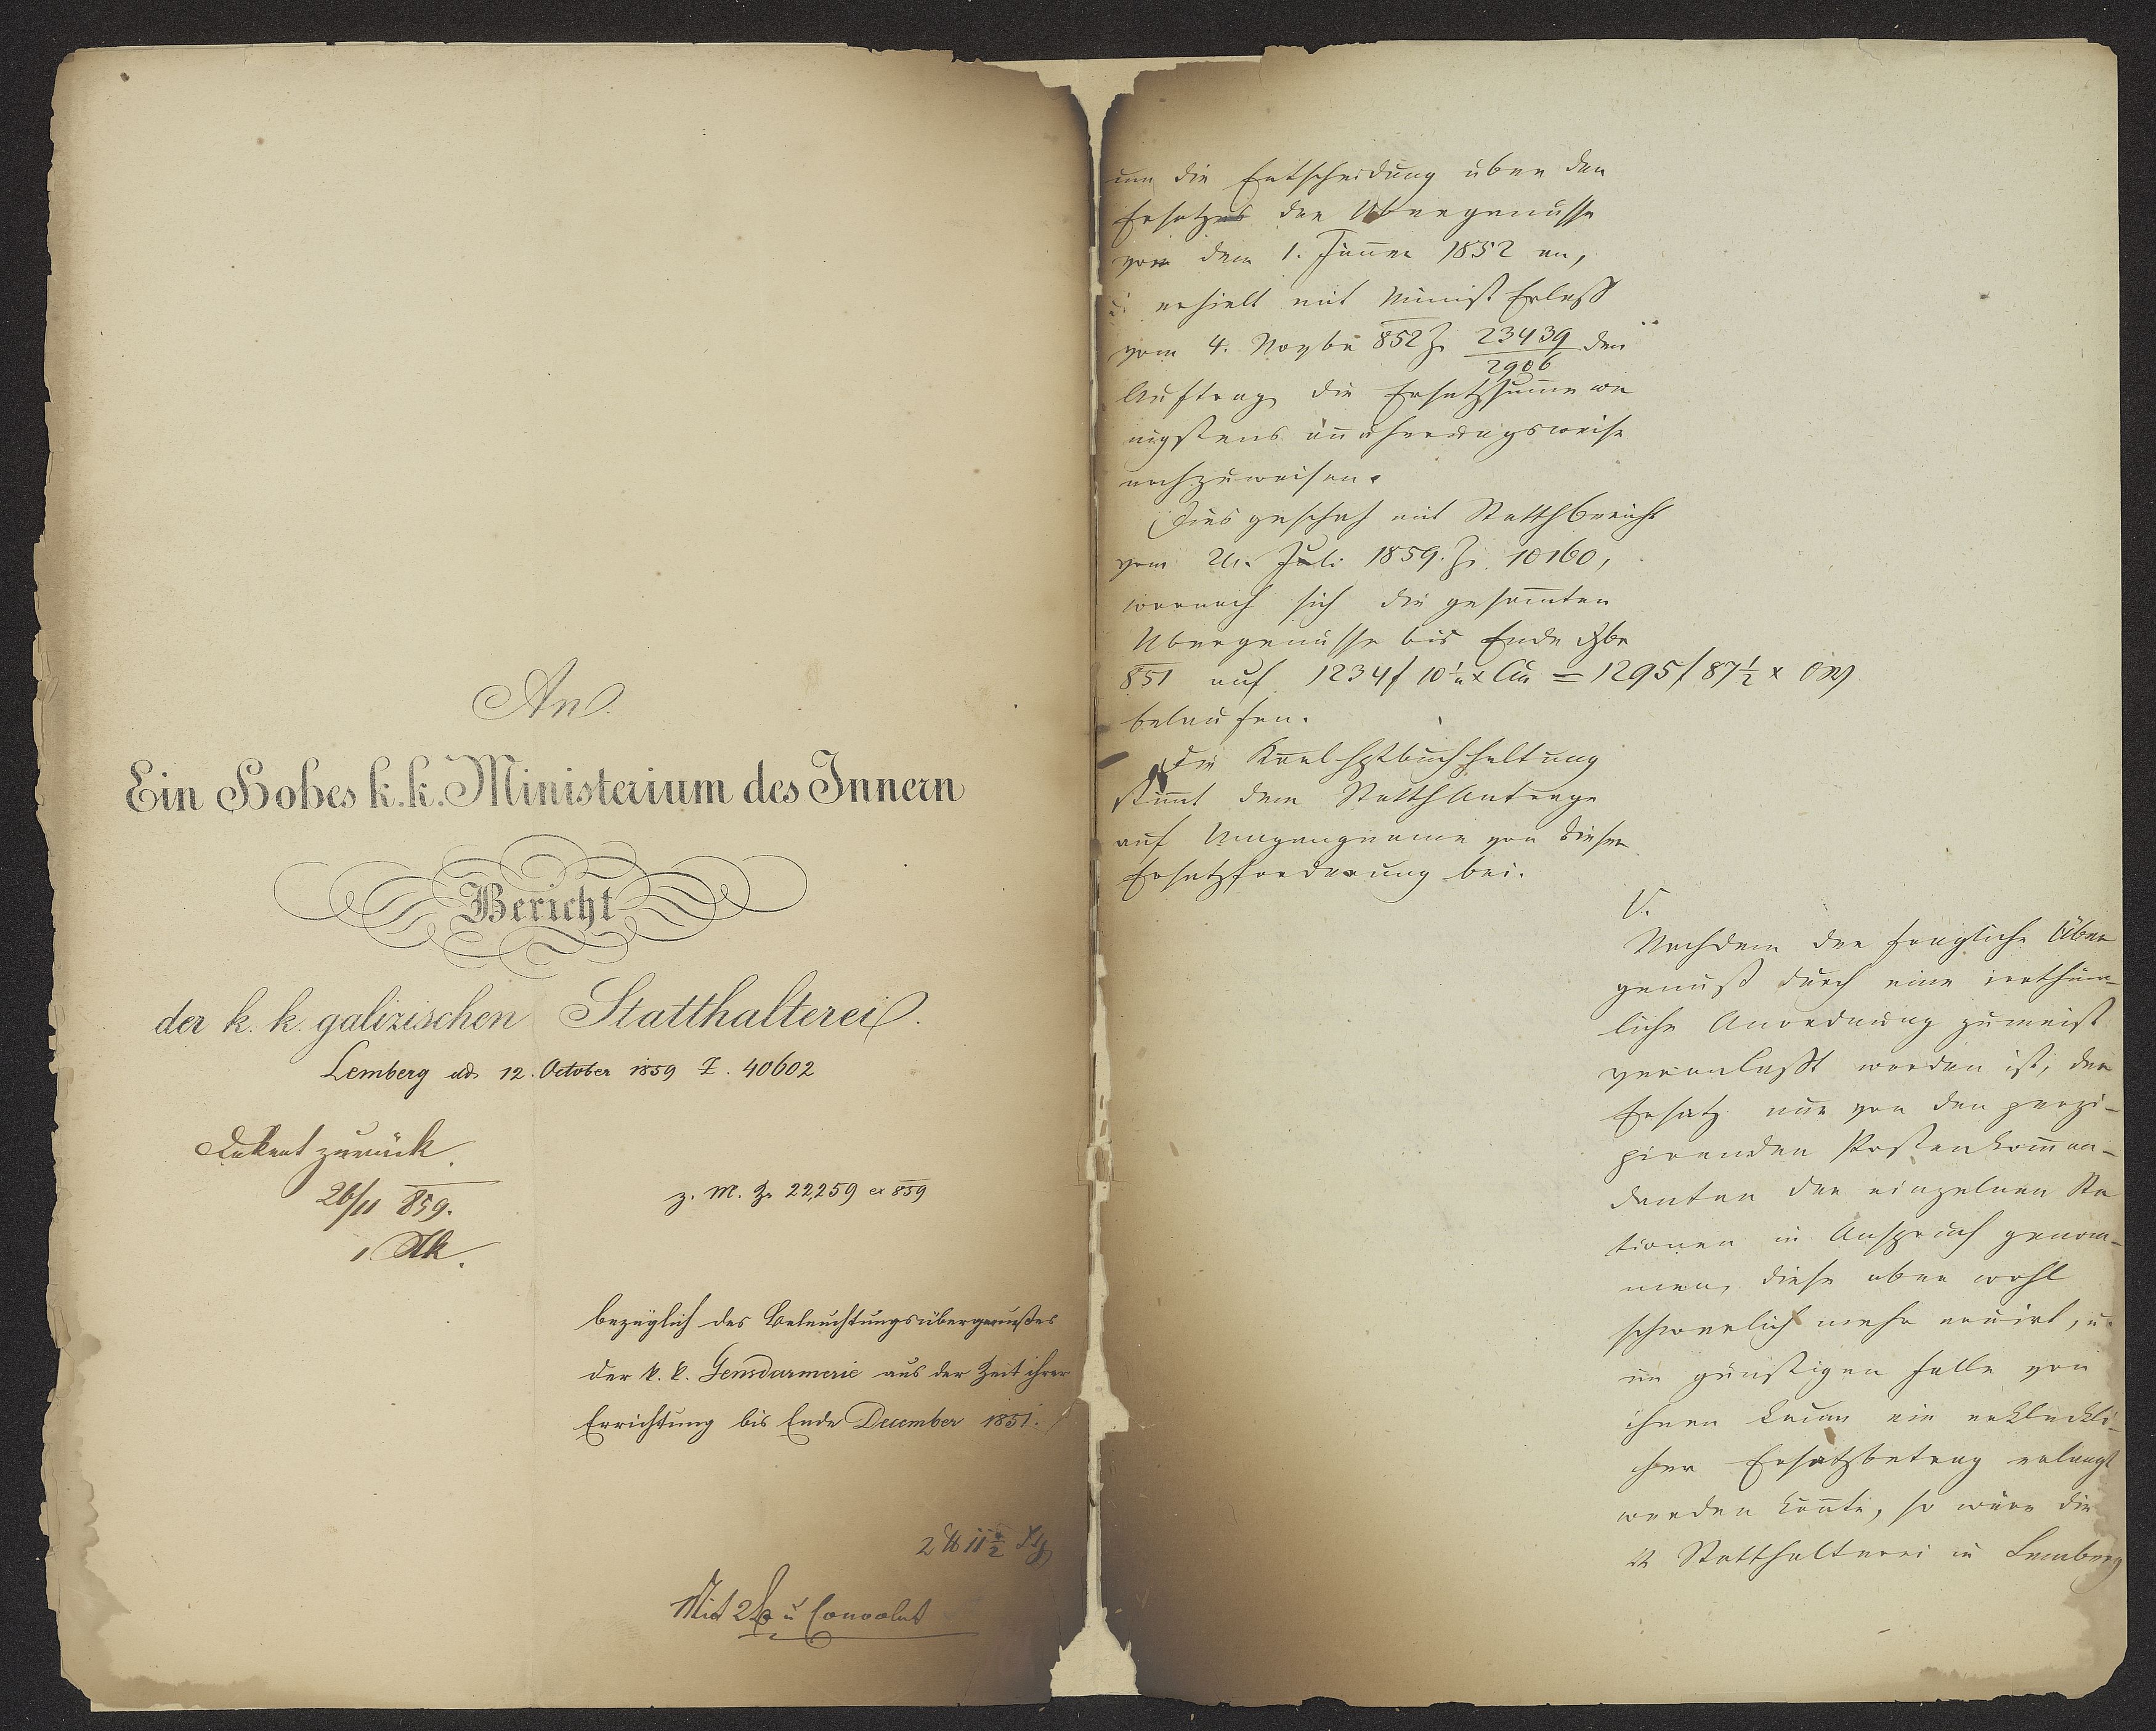 An
Ein Hohes k. k. Ministerium des Innern
Bericht
der k. k. galizischen Statthalterei.
Lemberg am 12. October 1859 Z. 40602
zurück
26/11 859.
z. M. Z. 22,259 ex 859
bezüglich des Beleuchtungsübergenußes
der k. k. Gensdarmerie aus der Zeit ihrer
Errichtung bis Ende December 1851.
Mit 2 u Convolut
um die Entscheidung über den
Ersatz der Übergenüsse
vor dem 1. Jänner 1852 an,
u. erhielt mit Minist Erlaß
vom 4. Novbr 852 Z. 23439/2906 den
Auftrag die Ersatzsumme we
nigstens annäherungsweise
nachzuweisen.
Dies geschah mit Statthbericht
vom 21. Juli 1859. Z. 10160,
wornach sich die gesammten
Übergenüsse bis Ende Xbr
851 auf 1234 f 10½ x CM = 1295 f 87½ x ÖW
belaufen.
Die Kreal Hptbuchhaltung
stimmt dem Statth Antrage
auf Umgangname von dieser
Ersatzforderung bei.
V.
Nachdem der fragliche Über
genuß durch eine irrthüm-
liche Anordnung zumeist
veranlaßt worden ist, der
Ersatz nur von den perzi-
pirenden Postenkomman-
danten der einzelnen Sta
tionen in Anspruch genom-
men, diese aber wohl
schwerlich mehr eruirt, u.
im günstigen Falle von
ihnen kaum ein erklekli-
cher Ersatzbetrag erlangt
werden könnte, so wäre die
Statthalterei in Lemberg